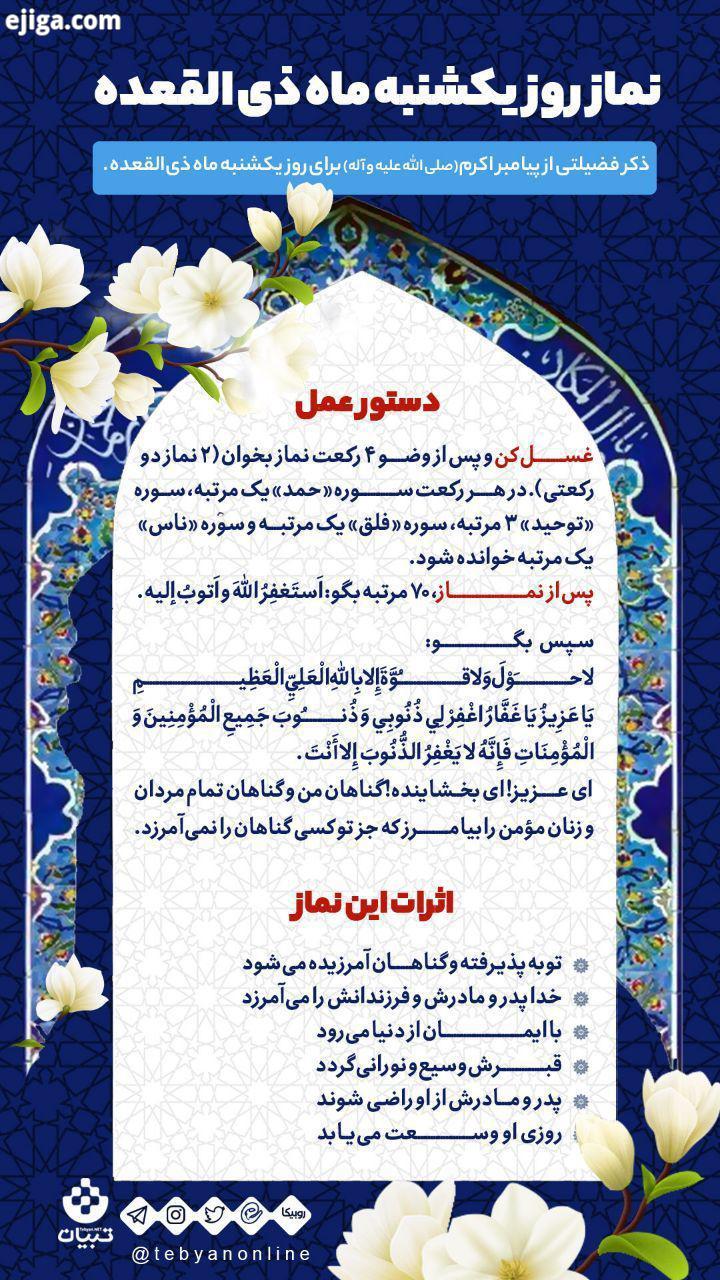 ejiga.com
نماز روز یکشنبه ماه ذی القعده
ذکر فضیلتی از پیامبر اکرم(صلی الله علیه و آله) برای روز یکشنبه ماه ذی القعده.
دستور عمل
غسل کن و پس از وضو ۴ رکعت نماز بخوان (۲ نماز دو
رکعتی). در هر رکعت سوره «حمد» یک مرتبه، سوره
«توحید» ۳ مرتبه، سوره «فلق» یک مرتبه و سوره «ناس»
یک مرتبه خوانده شود.
پس از نماز، ۷۰ مرتبه بگو: اَستَغفِرُ اللهَ وَ اَتوبُ إلیه.
سپس بگو:
لا حَوْلَ وَلا قُوَّةَ إِلا بِاللهِ الْعَلِيِّ الْعَظِيمِ
يَا عَزِيزُ يَا غَفَّارُ اغْفِرْ لِي ذُنُوبِي وَ ذُنُوبَ جَمِيعِ الْمُؤْمِنِينَ وَ
الْمُؤْمِنَاتِ فَإِنَّهُ لا يَغْفِرُ الذُّنُوبَ إِلا أَنْتَ.
ای عزیز! ای بخشاینده! گناهان من و گناهان تمام مردان
و زنان مؤمن را بیامرز که جز تو کسی گناهان را نمی‌آمرزد.
اثرات این نماز
توبه پذیرفته و گناهان آمرزیده می شود
خدا پدر و مادرش و فرزندانش را می‌آمرزد
با ایمان از دنیا می رود
قبرش وسیع و نورانی گردد
پدر و مادرش از او راضی شوند
روزی او وسعت می یابد
تبیان
Tebyan.NET
روبیکا
@tebyanonline